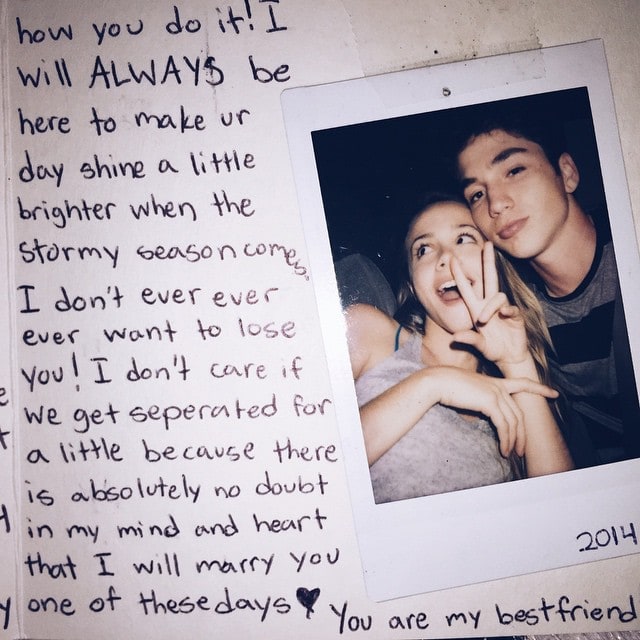 how you do it! I
will ALWAYS be
here to make ur
day shine a little
brighter when the
stormy season comes.
I don't ever ever
ever want to lose
you! I don't care if
we get seperated for
a little because there
is absolutely no doubt
in my mind and heart
that I will marry you
one of these days♥ You are my bestfriend
2014